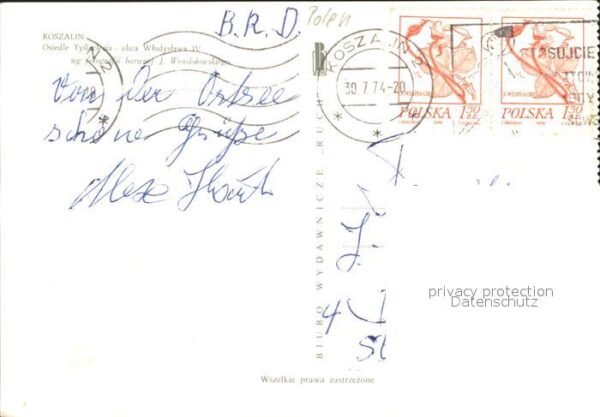 B.R.D.
Polen
KOSZALIN
Osiedle Tysiąclecia - ulica Władysława IV
wg fotografii barwnej J. Wendołowskiego
KOSZALIN 2
30.7.74-20
POLSKA 1,50 ZŁ
POLSKA 1,50 ZŁ
Von der Ostsee
schöne Grüße
BIURO WYDAWNICZE RUCH
privacy protection
Datenschutz
4
St
Wszelkie prawa zastrzeżone